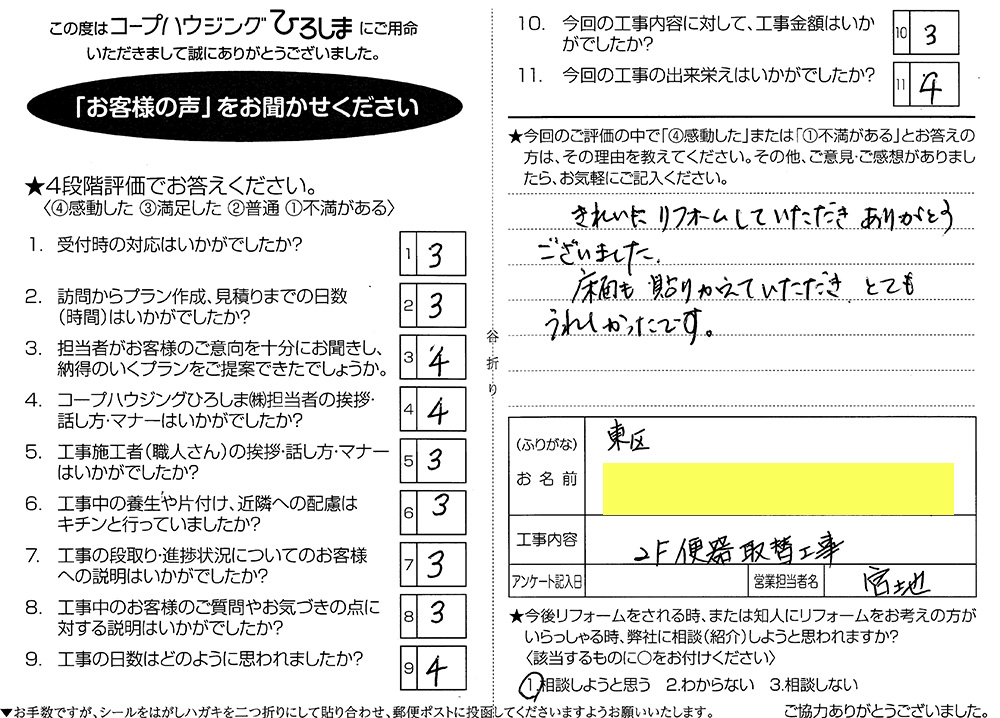 この度はコープハウジングひろしまにご用命
いただきまして誠にありがとうございました。
「お客様の声」をお聞かせください
★4段階評価でお答えください。
〈④感動した ③満足した ②普通 ①不満がある〉
1. 受付時の対応はいかがでしたか?
1 3
2. 訪問からプラン作成、見積りまでの日数
(時間)はいかがでしたか?
2 3
3. 担当者がお客様のご意向を十分にお聞きし、
納得のいくプランをご提案できたでしょうか。
3 4
4. コープハウジングひろしま㈱担当者の挨拶・
話し方・マナーはいかがでしたか?
4 4
5. 工事施工者(職人さん)の挨拶・話し方・マナー
はいかがでしたか?
5 3
6. 工事中の養生や片付け、近隣への配慮は
キチンと行っていましたか?
6 3
7. 工事の段取り・進捗状況についてのお客様
への説明はいかがでしたか?
7 3
8. 工事中のお客様のご質問やお気づきの点に
対する説明はいかがでしたか?
8 3
9. 工事の日数はどのように思われましたか?
9 4
▼お手数ですが、シールをはがしハガキを二つ折りにして貼り合わせ、郵便ポストに投函してくださいますようお願いいたします。
谷折り
10. 今回の工事内容に対して、工事金額はいか
がでしたか?
10 3
11. 今回の工事の出来栄えはいかがでしたか?
11 4
★今回のご評価の中で「④感動した」または「①不満がある」とお答えの
方は、その理由を教えてください。その他、ご意見・ご感想がありまし
たら、お気軽にご記入ください。
きれいに リフォームしていただき ありがとう
ございました。
床面も 貼りかえていただき とても
うれしかったです。
(ふりがな)
お名前
東区
工事内容
2F 便器取替工事
アンケート記入日
営業担当者名
宮地
★今後リフォームをされる時、または知人にリフォームをお考えの方が
いらっしゃる時、弊社に相談(紹介)しようと思われますか?
〈該当するものに○をお付けください〉
1.相談しようと思う 2.わからない 3.相談しない
ご協力ありがとうございました。